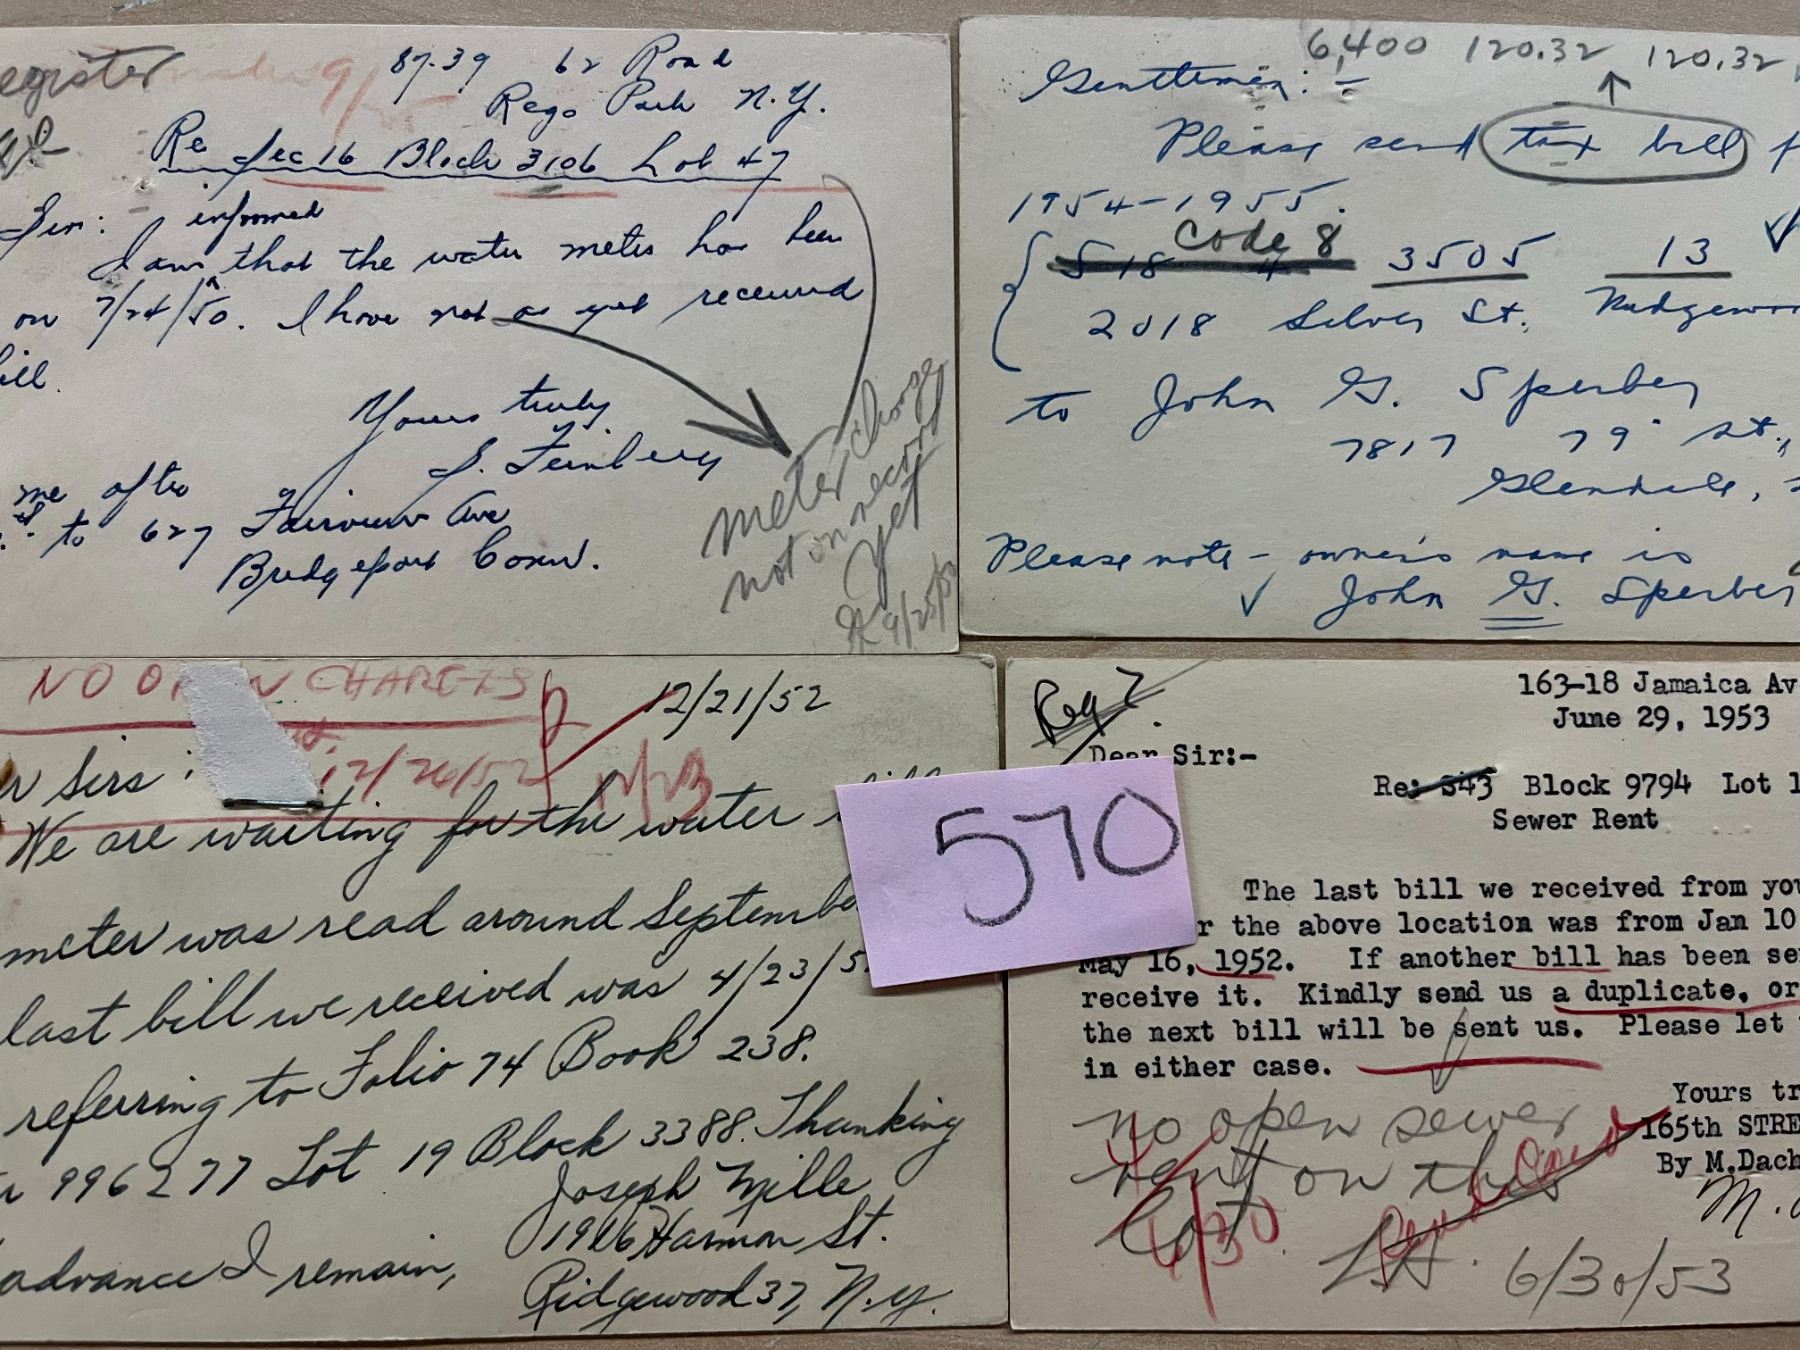 87-39 62 Road
Rego Park N.Y.
Re Sec 16 Block 3106 Lot 47
Sir:
informed
I am that the water meter has been
on 7/24/50. I have not as yet received
bill.
Yours truly
S. Feinberg
me after
to 627 Fairview Ave
Bridgeport Conn.
meter change
not on record
yet
9/25/50
6,400 120.32 120.32
Gentlemen:-
Please send tax bill
1954-1955.
Code 8
518 4 3505 13
2018 Silver St. Ridgewoo
to John G. Sperber
7817 79 St.,
Glendale,
Please note - owner's name is
John G. Sperber
NO OPEN CHARGES
12/21/52
12/26/52
Sirs:
We are waiting for the water
meter was read around September
last bill we received was 4/23/5
referring to Folio 74 Book 238.
996277 Lot 19 Block 3388. Thanking
Joseph Mille
1916 Harmon St.
advance I remain,
Ridgewood 37, N.Y.
570
163-18 Jamaica Av
June 29, 1953
Dear Sir:-
Re: S43 Block 9794 Lot 1
Sewer Rent
The last bill we received from you
r the above location was from Jan 10
May 16, 1952. If another bill has been se
receive it. Kindly send us a duplicate, or
the next bill will be sent us. Please let
in either case.
Yours tr
165th STRE
By M.Dach
no open sewer
rent on this
lot.
6/30
6/30/53